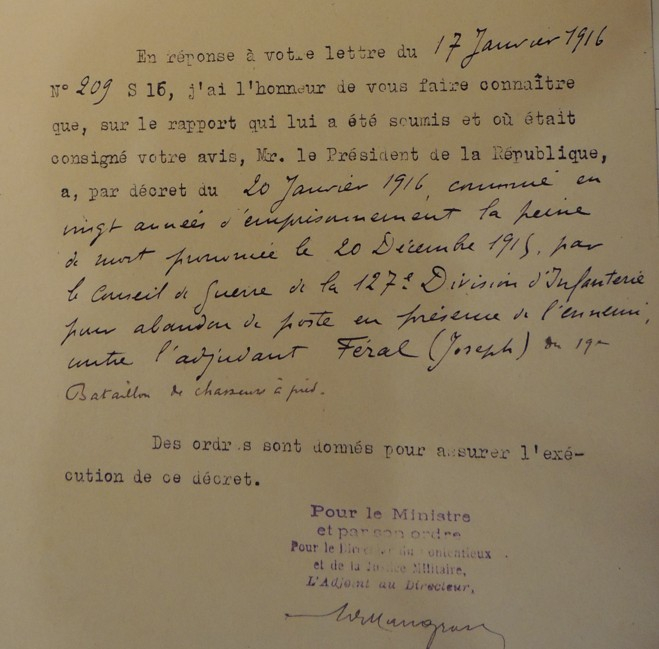 En réponse à votre lettre du 17 Janvier 1916
N° 209 S 15, j'ai l'honneur de vous faire connaître
que, sur le rapport qui lui a été soumis et où était
consigné votre avis, Mr. le Président de la République,
a, par décret du 20 Janvier 1916, commué en
vingt années d'emprisonnement la peine
de mort prononcée le 20 Décembre 1915, par
le Conseil de Guerre de la 127e Division d'Infanterie
pour abandon de poste en présence de l'ennemi,
contre l'adjudant Féral (Joseph) du 19e
Bataillon de chasseurs à pied.
Des ordres sont donnés pour assurer l'exé-
cution de ce décret.
Pour le Ministre
et par son ordre
Pour le Directeur du Contentieux
et de la Justice Militaire,
L'Adjoint au Directeur,